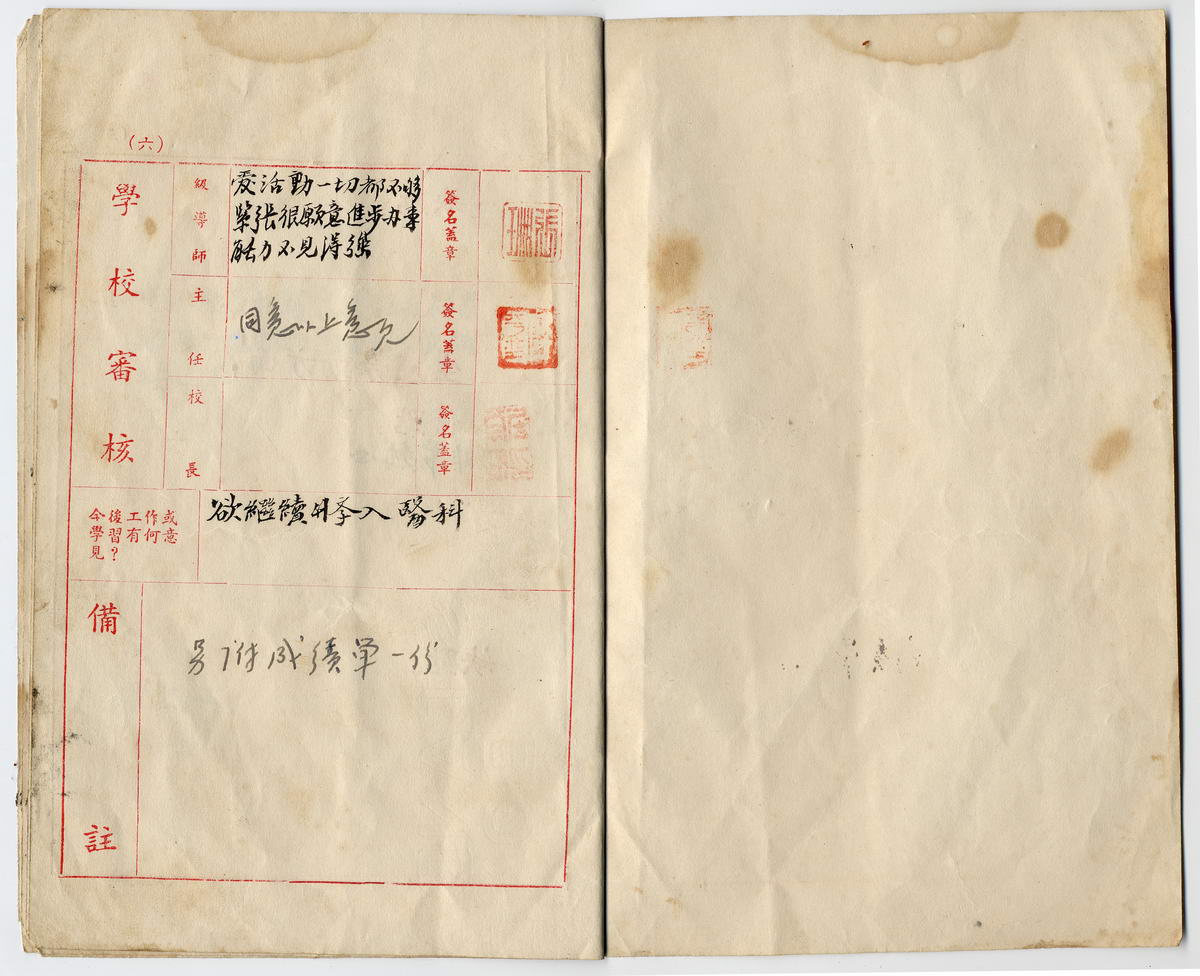 (六)
學校審核
級導師
爱活動一切都不够
紧張很願意進步办事
能力不見得強
簽名蓋章
主任
同意以上意見
簽名蓋章
校長
簽名蓋章
今後工作或
學習有何意
見?
欲繼續升学入醫科
備註
另附成績單一份